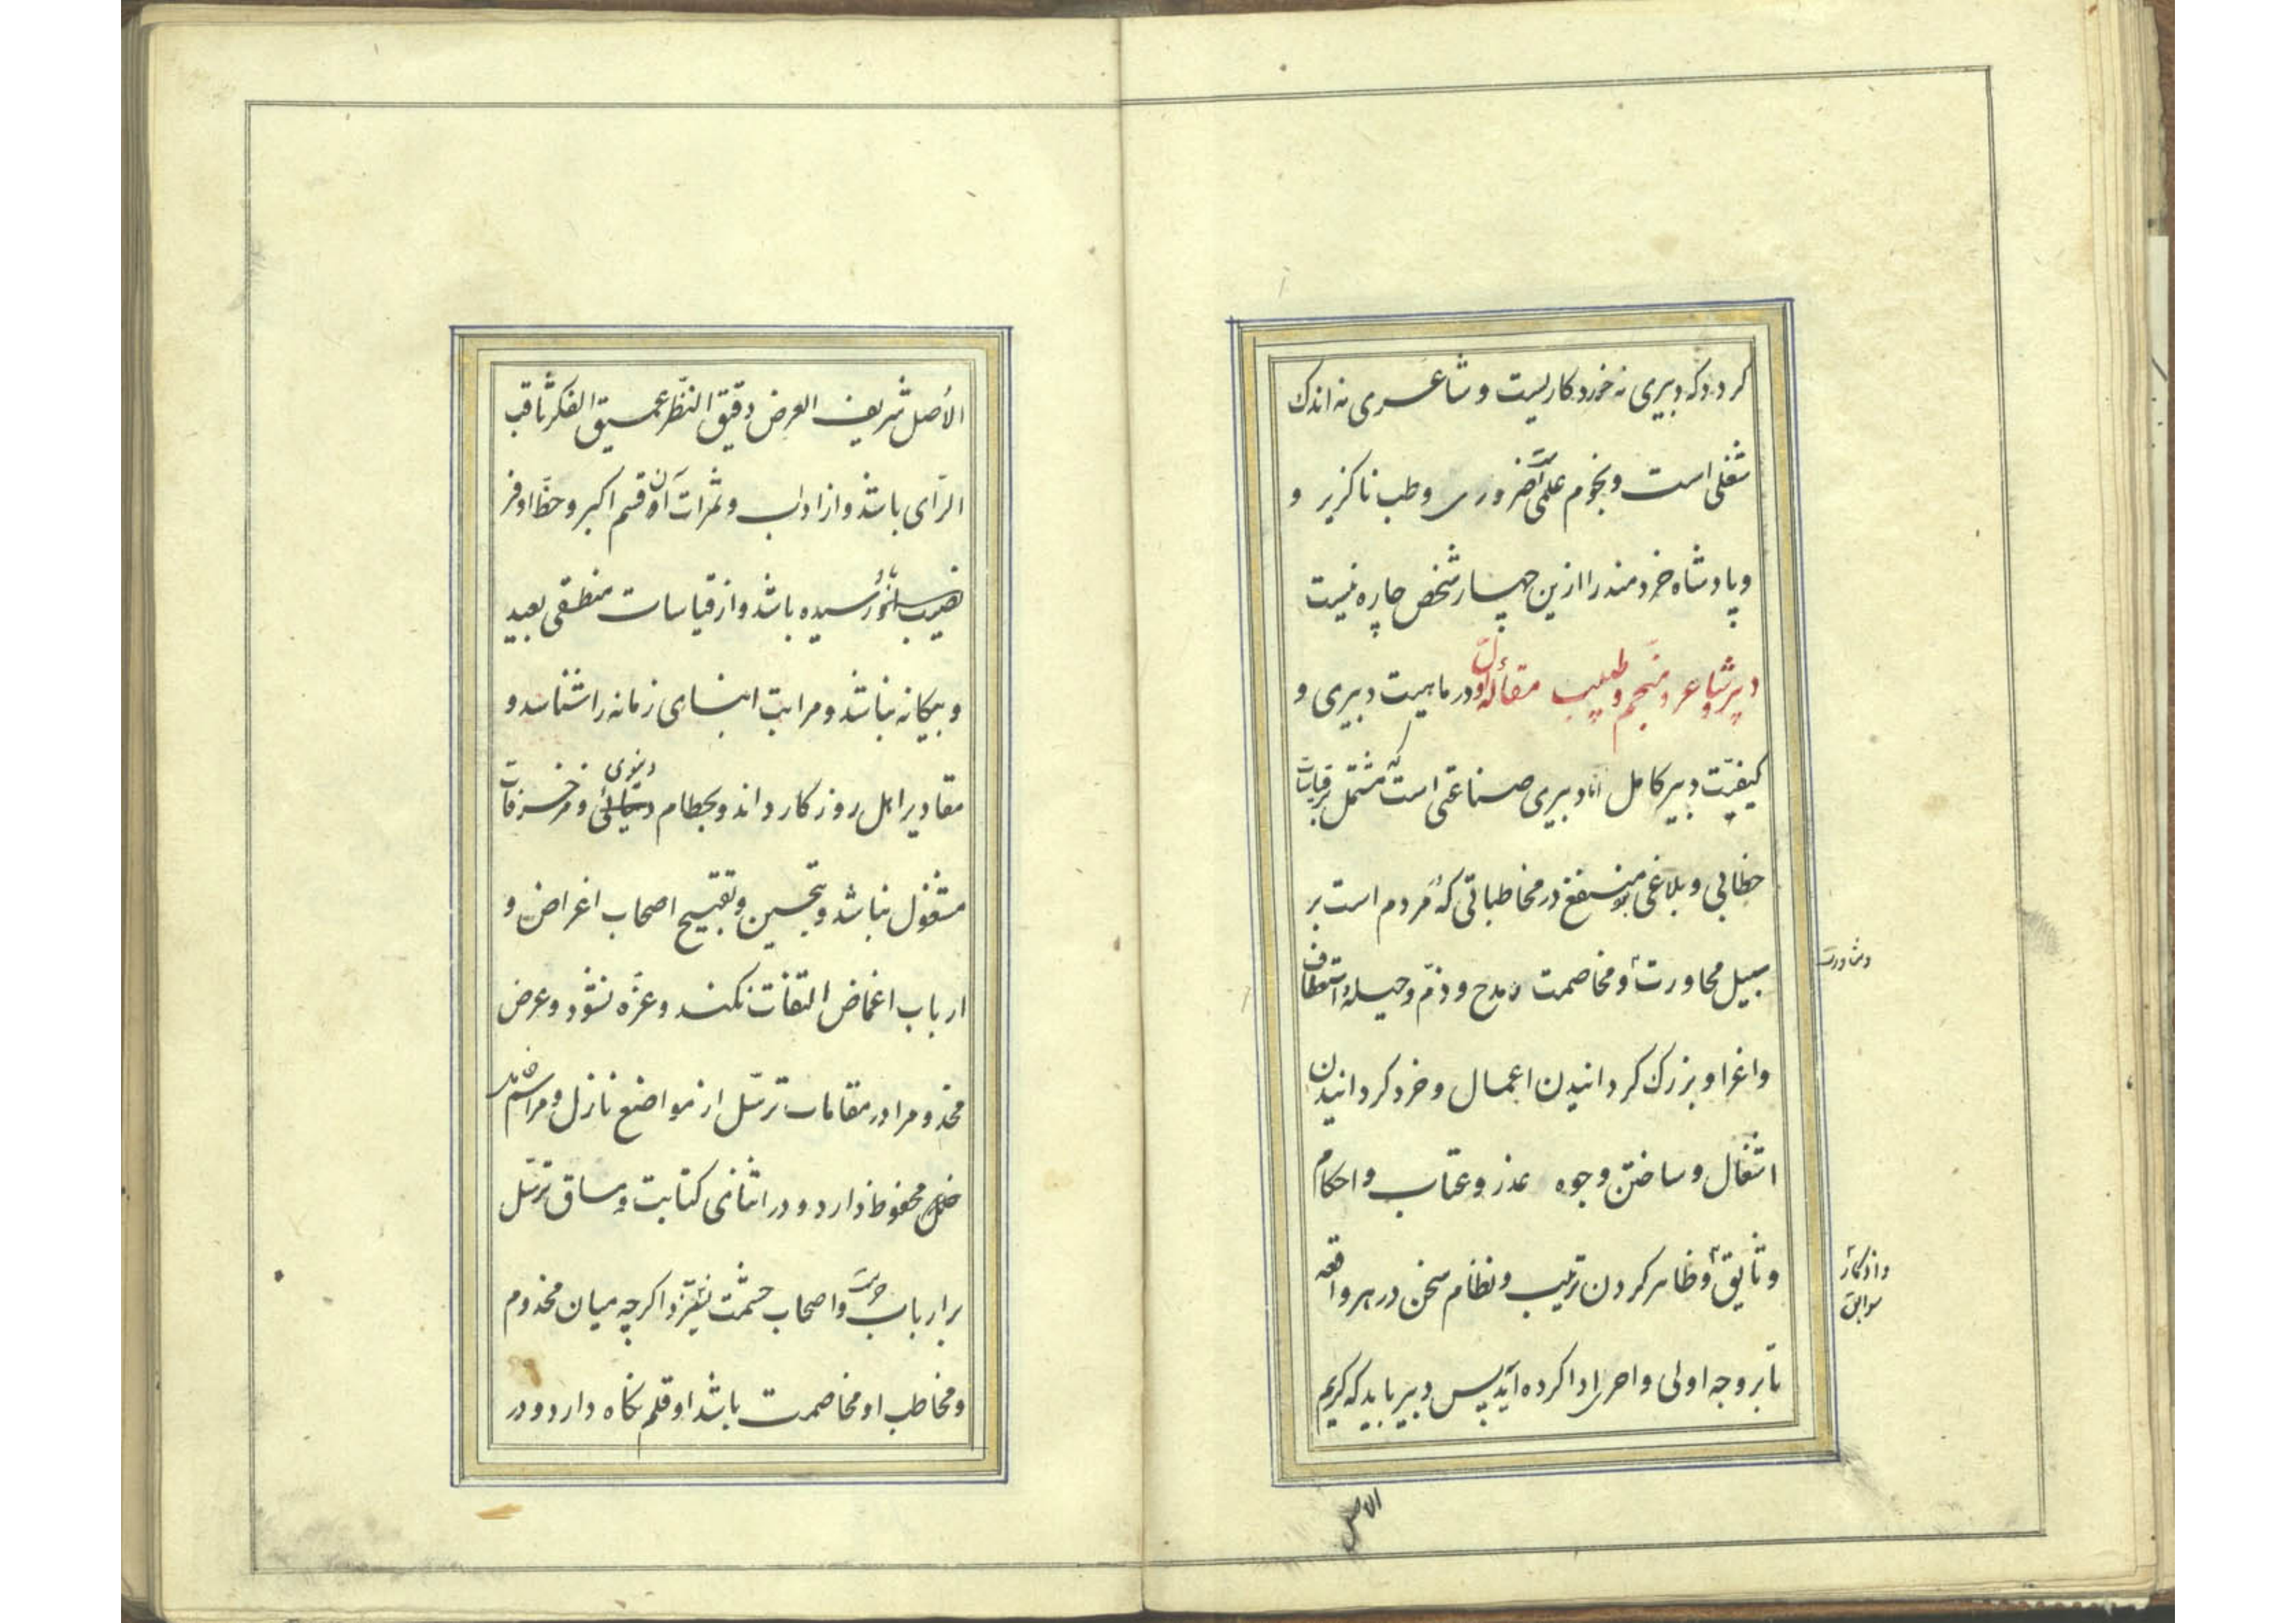 کردد که دبیری نه خورد کاریست و شاعری نه اندک
شغلی است و نجوم علمی است ضروری و طب ناکزیر و
و پادشاه خردمند را ازین چهار شخص چاره نیست
دبیر و شاعر و منجم و طبیب مقاله اول در ماهیت دبیری و
کیفیّت دبیر کامل اما دبیری صناعتی است که مشتمل بر قیاسات
خطابی و بلاغی منتفع در مخاطباتی که مردم است بر
سبیل محاورت و مخاصمت و مدح و ذمّ و حیله و استعطاف
و مشاورت
و اغرا و بزرک کردانیدن اعمال و خرد کردانیدن
اشغال و ساختن وجوه عذر و عتاب و احکام
وثایق و ظاهر کردن ترتیب و نظام سخن در هر واقعه
و اذکار
سوابق
تا بر وجه اولی و احری ادا کرده آید پس دبیر باید که کریم
الاصل
الأصل شریف العرض دقیق النّظر عمیق الفکر ثاقب
الرّای باشد و از ادب و ثمرات آن قسم اکبر و حظّ اوفر
نصیب او رسیده باشد و از قیاسات منطقی بعید
و بیکانه نباشد و مراتب ابنای زمانه را شناسد و
مقادیر اهل روزکار داند و بحطام دنیوی و مزخرفات
مشغول نباشد و بتحسین و تقبیح اصحاب اغراض و
ارباب اغماض التفات نکند و غرّه نشود و عرض
مخدوم را در مقامات ترسّل از مواضع نازل و مراسم
خامل محفوظ دارد و در اثنای کتابت و مساق ترسّل
بر ارباب حرمت و اصحاب حشمت نستیزد و اکرچه میان مخدوم
و مخاطب او مخاصمت باشد او قلم نکاه دارد و در